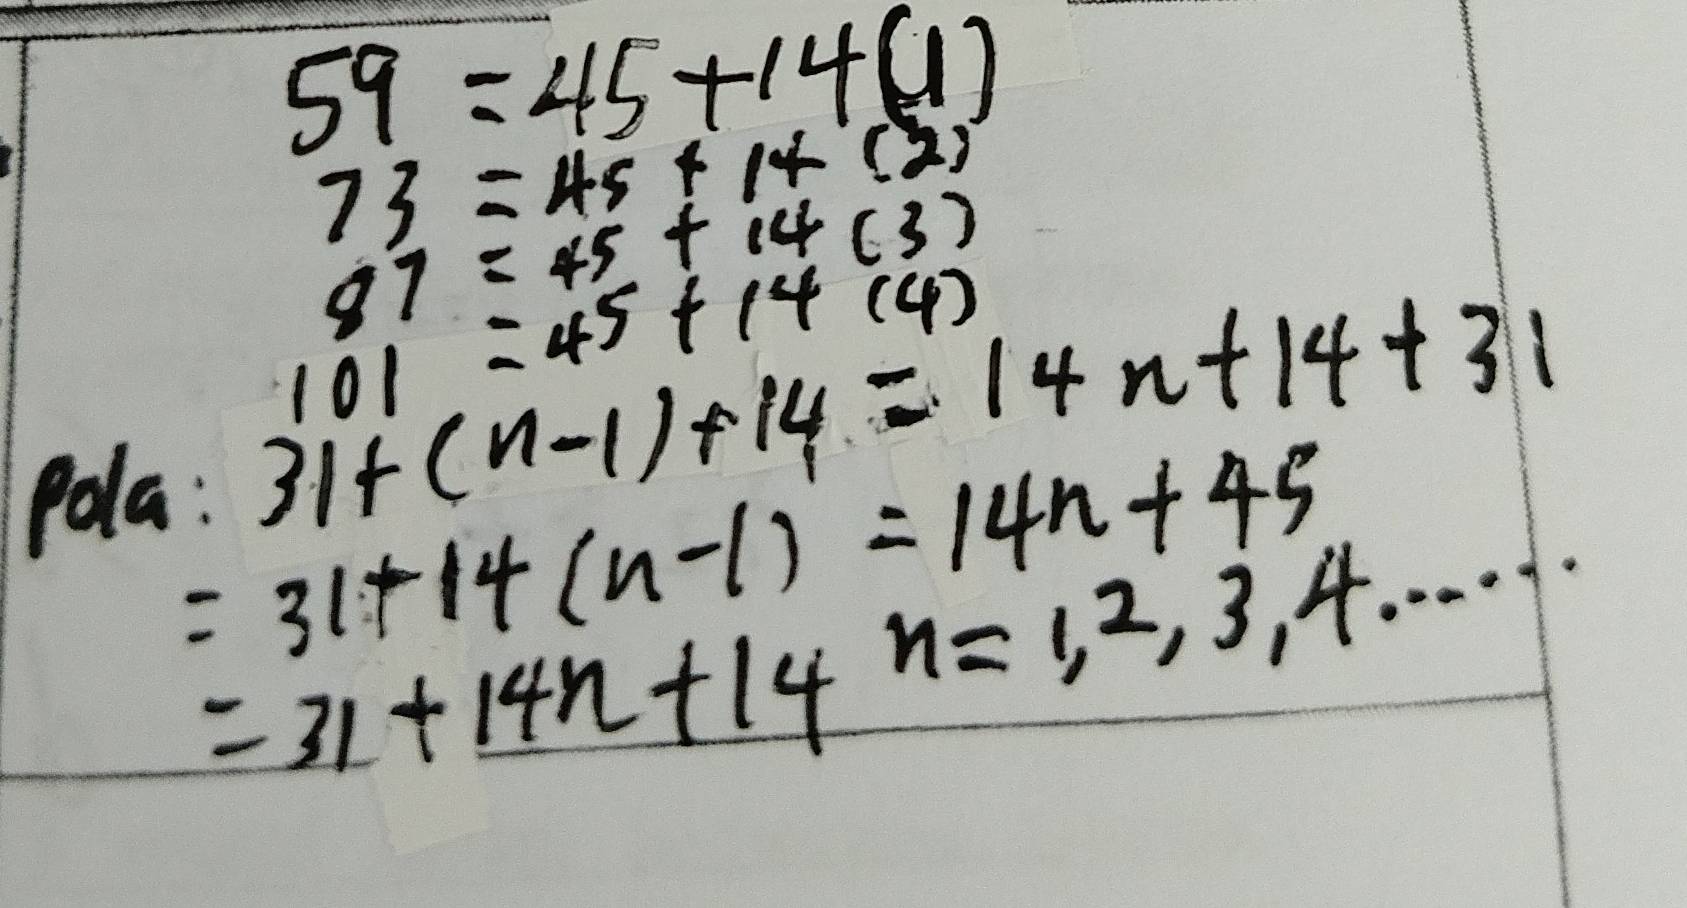 59 = 45 + 14 (1)
73 = 45 + 14 (2)
87 = 45 + 14 (3)
101 = 45 + 14 (4)
Pola: 31 + (n-1) + 14 = 14n + 14 + 31
= 31 + 14 (n-1) = 14n + 45
= 31 + 14n + 14 n = 1, 2, 3, 4.......